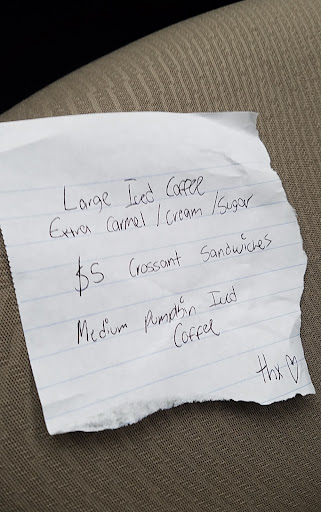 Large Iced Coffee
Extra Carmel / Cream / Sugar
$5 Crossant Sandwiches
Medium Pumpkin Iced
Coffee
thx ♡